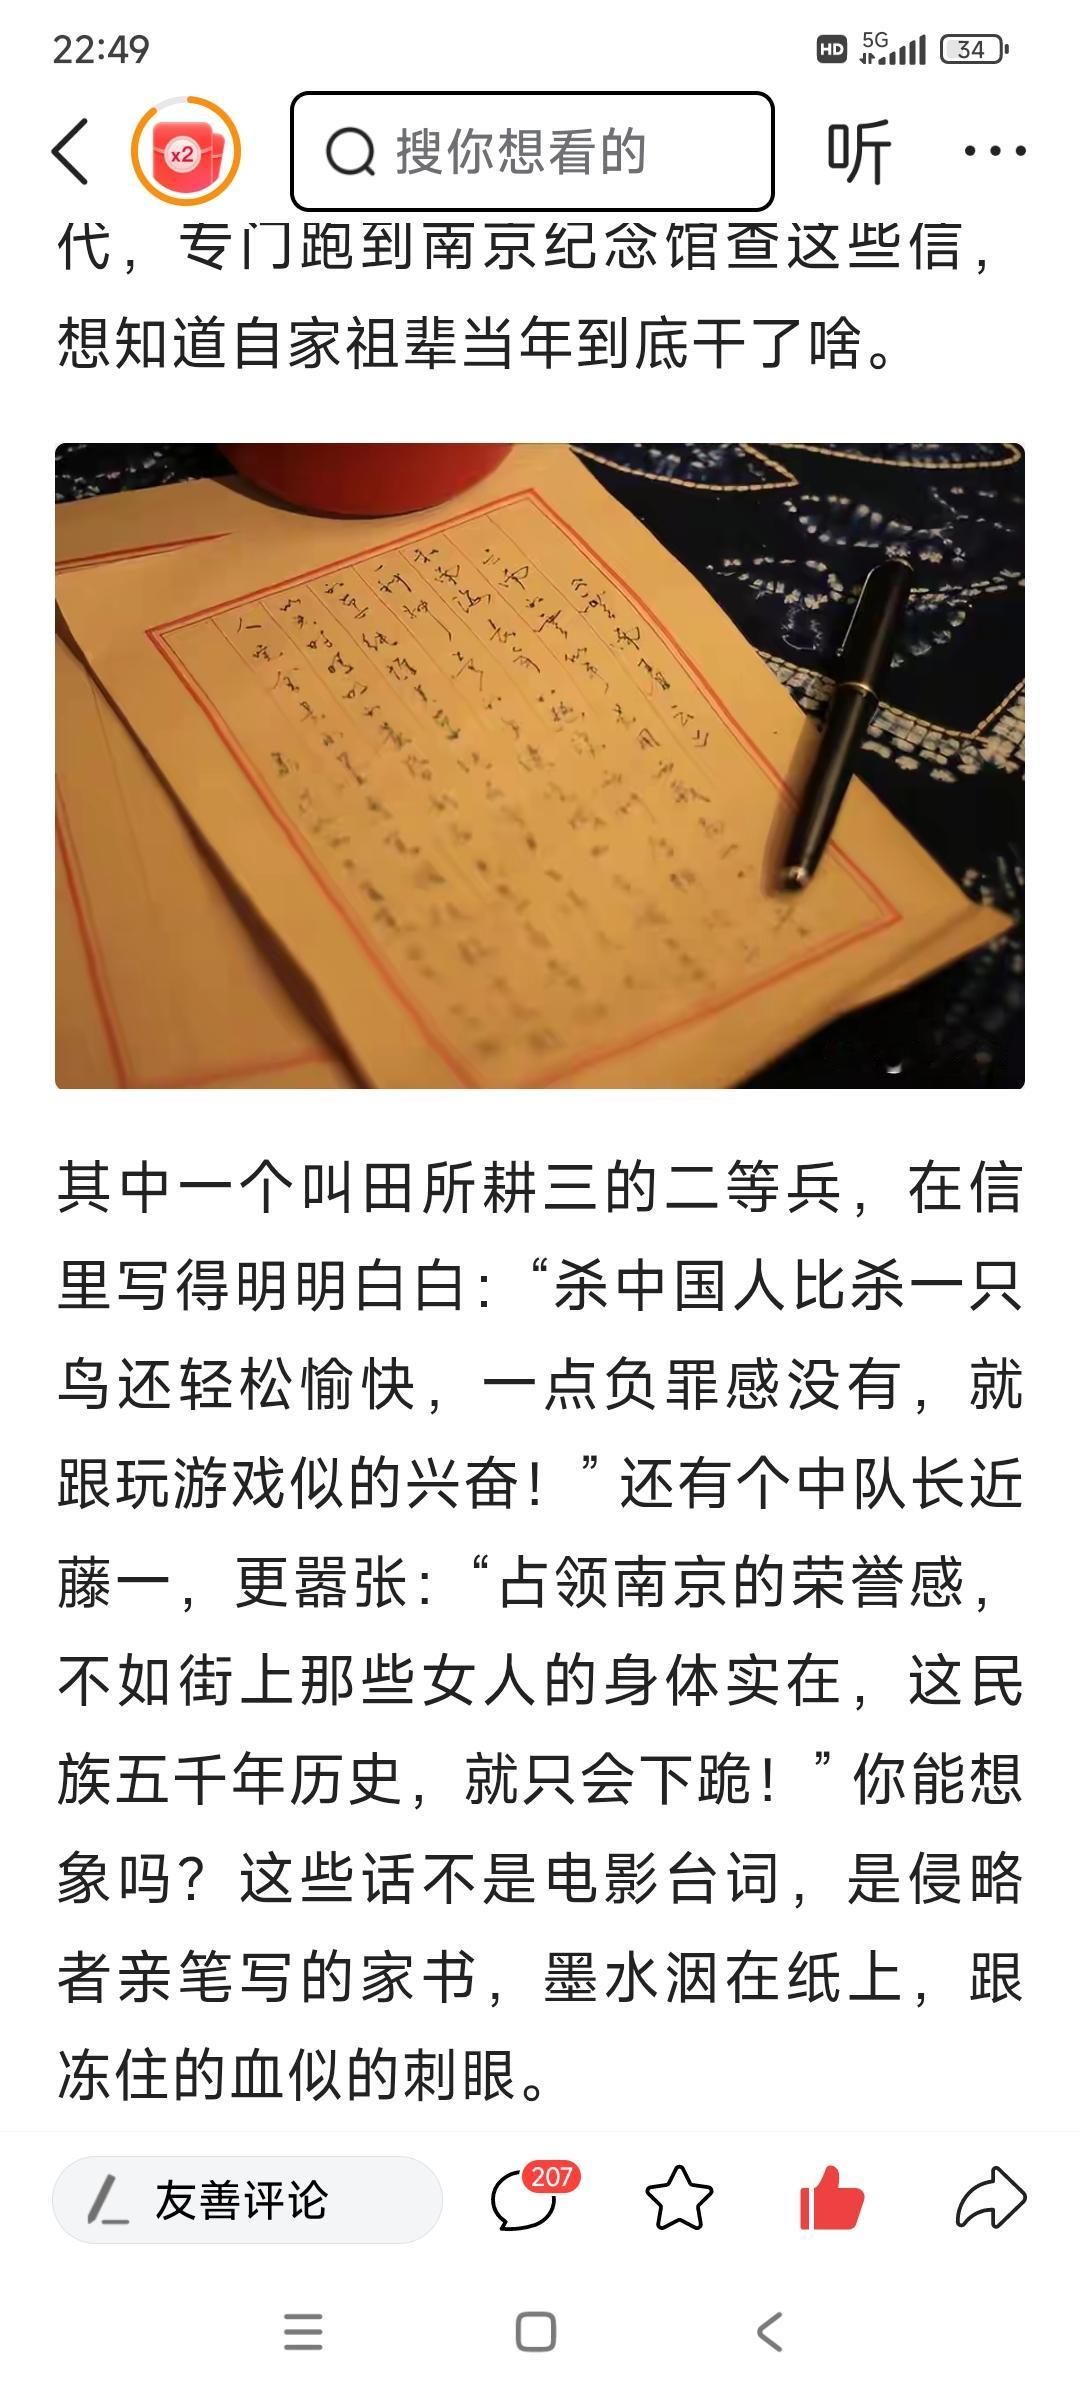 22:49
HD 5G 34
x2
搜你想看的
听
代，专门跑到南京纪念馆查这些信，
想知道自家祖辈当年到底干了啥。
其中一个叫田所耕三的二等兵，在信
里写得明明白白：“杀中国人比杀一只
鸟还轻松愉快，一点负罪感没有，就
跟玩游戏似的兴奋！”还有个中队长近
藤一，更嚣张：“占领南京的荣誉感，
不如街上那些女人的身体实在，这民
族五千年历史，就只会下跪！”你能想
象吗？这些话不是电影台词，是侵略
者亲笔写的家书，墨水洇在纸上，跟
冻住的血似的刺眼。
友善评论
207